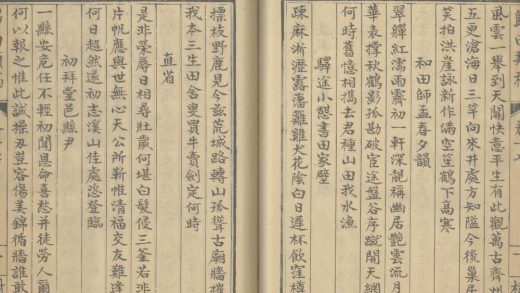 風雲一舉到天關快意平生有此觀萬古齊州
五更滄海日三竿向來井處方知隘今後巢居
笑拍洪崖詠新作滿空笙鶴下高寒
和田師孟春夕韻
翠驛紅濡雨霽初一軒深靚稱幽居艷雲流月
華表撑秋鶴影孤勘破宦途盤谷序蹴開天網
何時舊憶相攜去君種山田我水漁
驛途小憩書田家壁
疎麻淅瀝露藩籬雞犬花陰白日遲杯飲窪樽
標枝野鹿見今誰荒城路轉山孤聳古廟牆摧
我本三生田舍叟買牛賣劍定何時
直省
是非榮辱日相尋壯歲何堪白髮侵三釜若非
片帆應與世無心天公所靳惟清福交友難逢
何日超然遂初志溪山佳處恣登臨
初拜堂邑縣尹
一縣安危任不輕初聞恩命喜愁并徒勞人爾
何以報之惟此誠操刃豈容傷美錦循牆誰敢